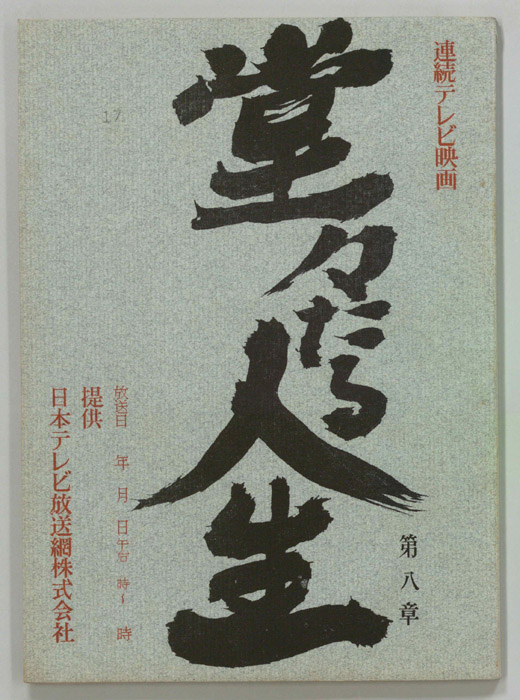 連続テレビ映画
堂々たる人生
第八章
放送日 年 月 日 午后 時～ 時
提供
日本テレビ放送網株式会社
17